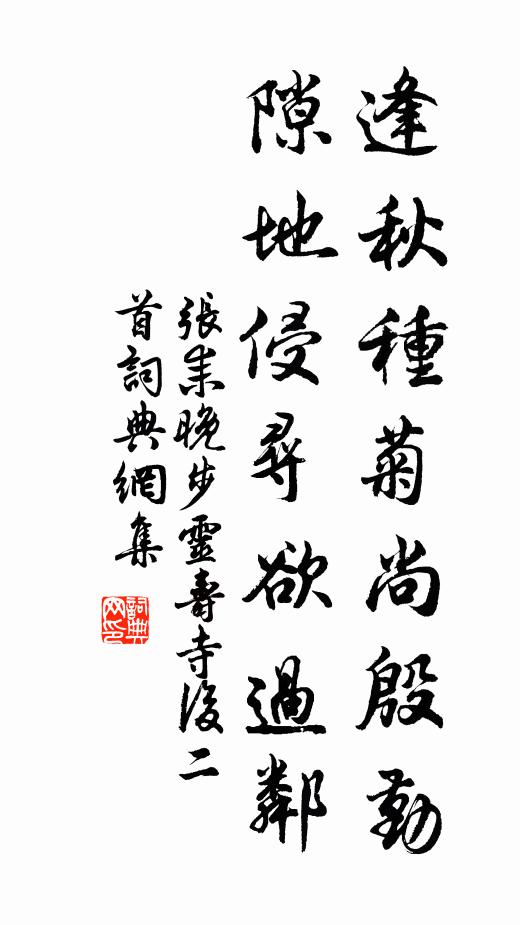 逢秋種菊尚殷勤
隙地侵尋欲過鄰
張耒晚步靈壽寺後二
首詞典網集
詞典
网印